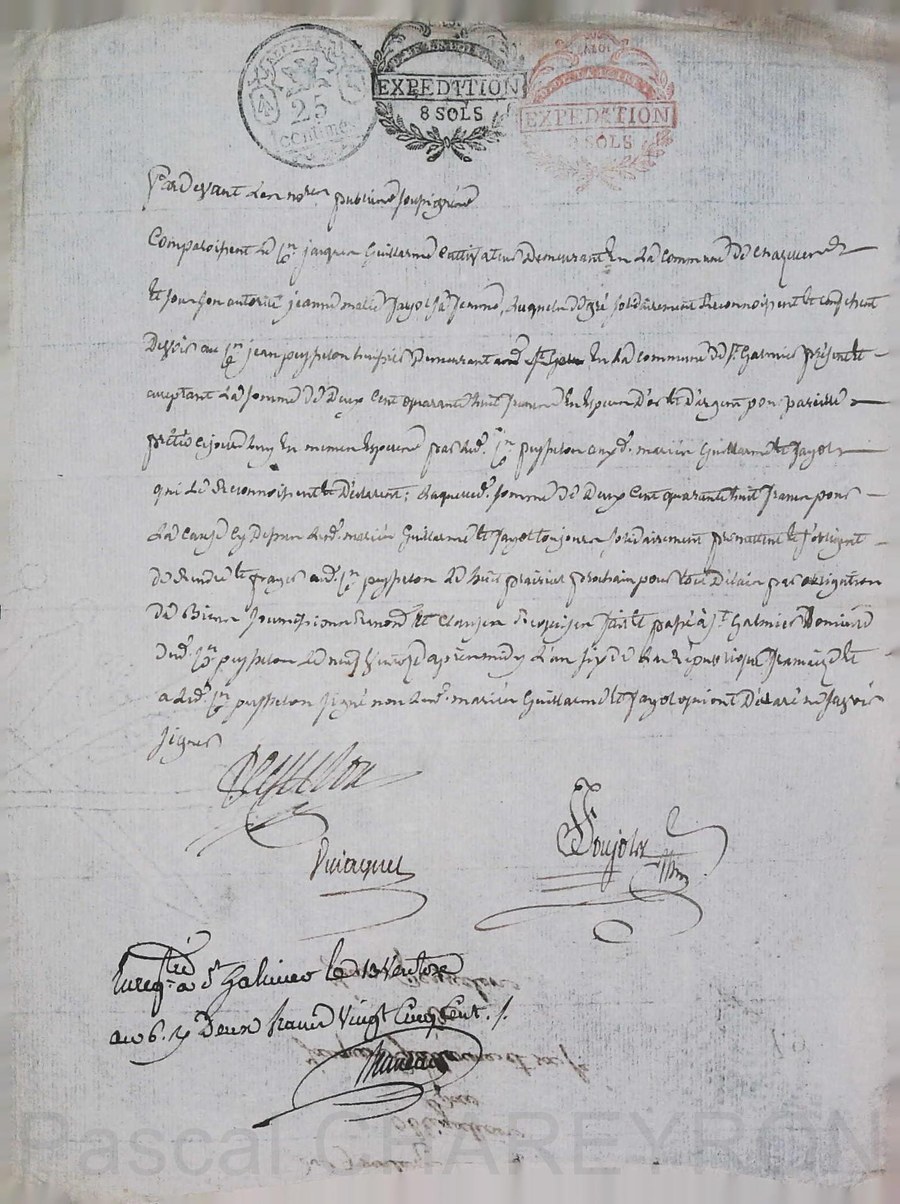 REP. FRA.
25
centimes
EXPEDITION
8 SOLS
EXPEDITION
8 SOLS
Pardevant Les no.res publics soussignés
Comparoissent Le c.en jacques Guillarme Cultivateur Demeurant En La commune De
Et sous son autorité jeanne marie Jayol sa femme, Lesquels De gré solidairement Reconnoissent Et confessent
Devoir au c.en jean peysselon Demeurant En La commune De S.t Galmier présent Et
acceptant La somme De Deux Cent quarante huit francs En Especes D'or Et D'argent pour pareille
prêtée cejourd'huy En mêmes Especes par Led. c.en peysselon auxd. mariés Guillarme Et Jayol
qui Le Reconnoissent Et Déclarent; Laquelle d. somme De Deux Cent quarante huit francs pour
La cause cy Dessus Led. mariés Guillarme Et Jayol toujours solidairement promettent Et s'obligent
De Rendre Et payer aud. c.en peysselon Le huit prairial prochain pour tout Délai par obligation
De Biens soumissions Renon.ons Et Clauses Requises fait Et passé à S.t Galmier Domicile
Dud. c.en peysselon Le neuf Ventose après midy L'an six De La République française Et
a Led. c.en peysselon signé non Lesd. mariés Guillarme Et Jayol qui ont Déclaré ne savoir
signer
Peysselon
Pujola
Enreg.tré a S.t Galmier le 13 Ventose
an 6. R Deux francs Vingt Cinq Cent.
Pascal CHAREYRON